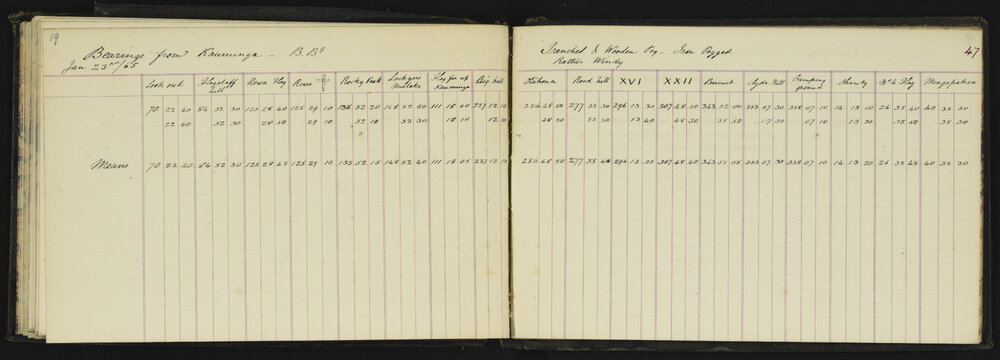 19
Bearings from Kauminga - B. Bs
Jan 23rd/65
Look out Flagstaff Hill Rewa Flag Rewa Rocky Peak Lockyers Mistake Flag far up Kauminga Big hill
70 22 40 84 52 30 125 28 40 125 29 10 135 52 20 148 52 50 111 18 00 227 12 10
22 40 52 30 28 50 29 10 52 10 52 30 18 10 12 10
Means 70 22 40 84 52 30 125 28 45 125 29 10 135 52 15 148 52 40 111 18 05 227 12 10
47
Trenched & Wooden Peg - Iron Pegged
Rather Windy
Rock Hill XVI XXII Biscuit Clyde Hill Camping ground Shanty No 4 Flag
256 48 50 277 55 30 296 13 30 307 48 50 343 52 00 333 07 30 338 07 10 14 13 10 26 35 40 40 35 30
48 50 55 50 13 40 48 30 51 50 07 30 07 10 13 30 35 50 35 30
256 48 50 277 55 40 296 13 35 307 48 40 343 51 55 333 07 30 338 07 10 14 13 20 26 35 45 40 35 30